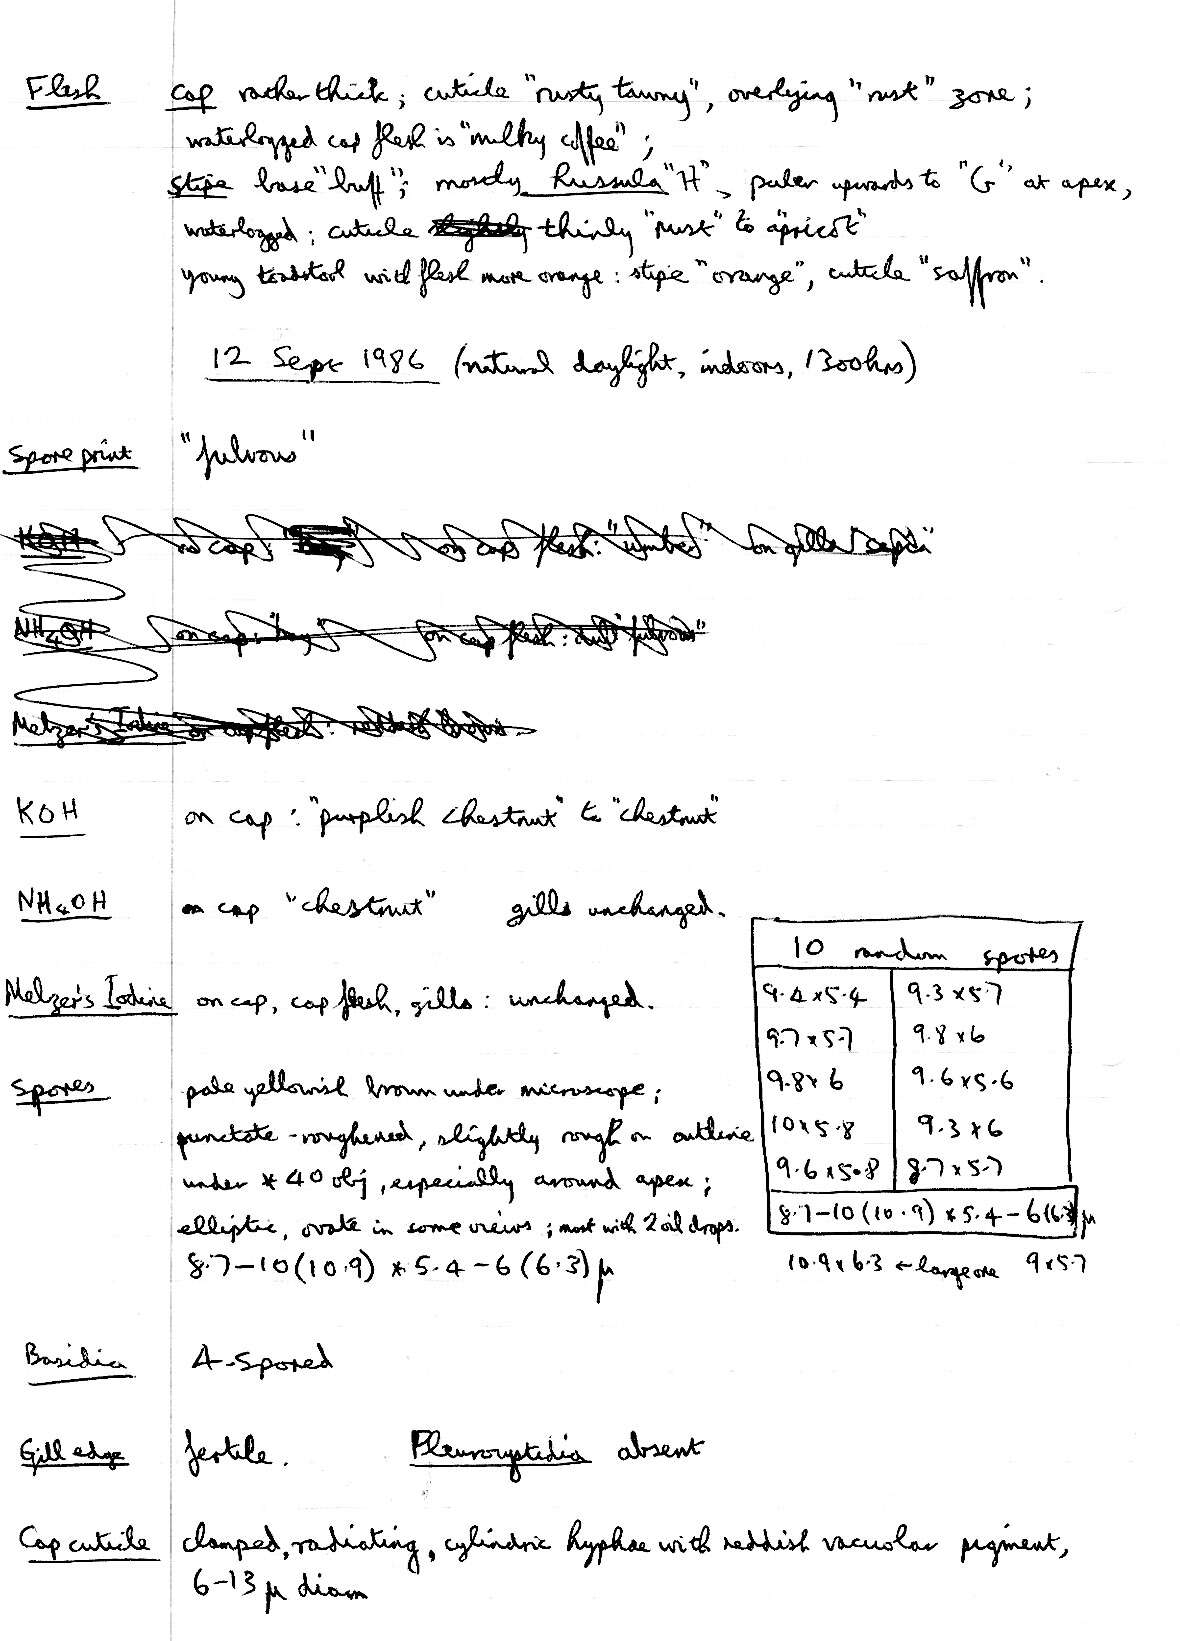 Flesh cap rather thick; cuticle "rusty tawny", overlying "rust" zone;
waterlogged cap flesh is "milky coffee";
stipe base "buff"; mostly Russula "H", paler upwards to "G" at apex,
waterlogged; cuticle slightly thinly "rust" to "apricot"
young toadstool with flesh more orange: stipe "orange", cuticle "saffron".
12 Sept 1986 (natural daylight, indoors, 1300hrs)
Spore print "fulvous"
KOH on cap: on cap flesh: "umber" on gills "sepia"
NH4OH on cap: "bay" on cap flesh: dull "fulvous"
Melzer's Iodine on cap flesh: reddish brown.
KOH on cap: "purplish chestnut" to "chestnut"
NH4OH on cap "chestnut" gills unchanged.
Melzer's Iodine on cap, cap flesh, gills: unchanged.
10 random spores
9.4 x 5.4 9.3 x 5.7
9.7 x 5.7 9.8 x 6
9.8 x 6 9.6 x 5.6
10 x 5.8 9.3 x 6
9.6 x 5.8 8.7 x 5.7
8.7-10 (10.9) x 5.4-6 (6.3) µ
10.9 x 6.3 ← large one 9 x 5.7
Spores pale yellowish brown under microscope;
punctate-roughened, slightly rough on outline
under x 40 obj, especially around apex;
elliptic, ovate in some views; most with 2 oil drops.
8.7-10 (10.9) x 5.4-6 (6.3) µ
Basidia 4-spored
Gill edge fertile. Pleurocystidia absent
Cap cuticle clamped, radiating, cylindric hyphae with reddish vacuolar pigment,
6-13 µ diam